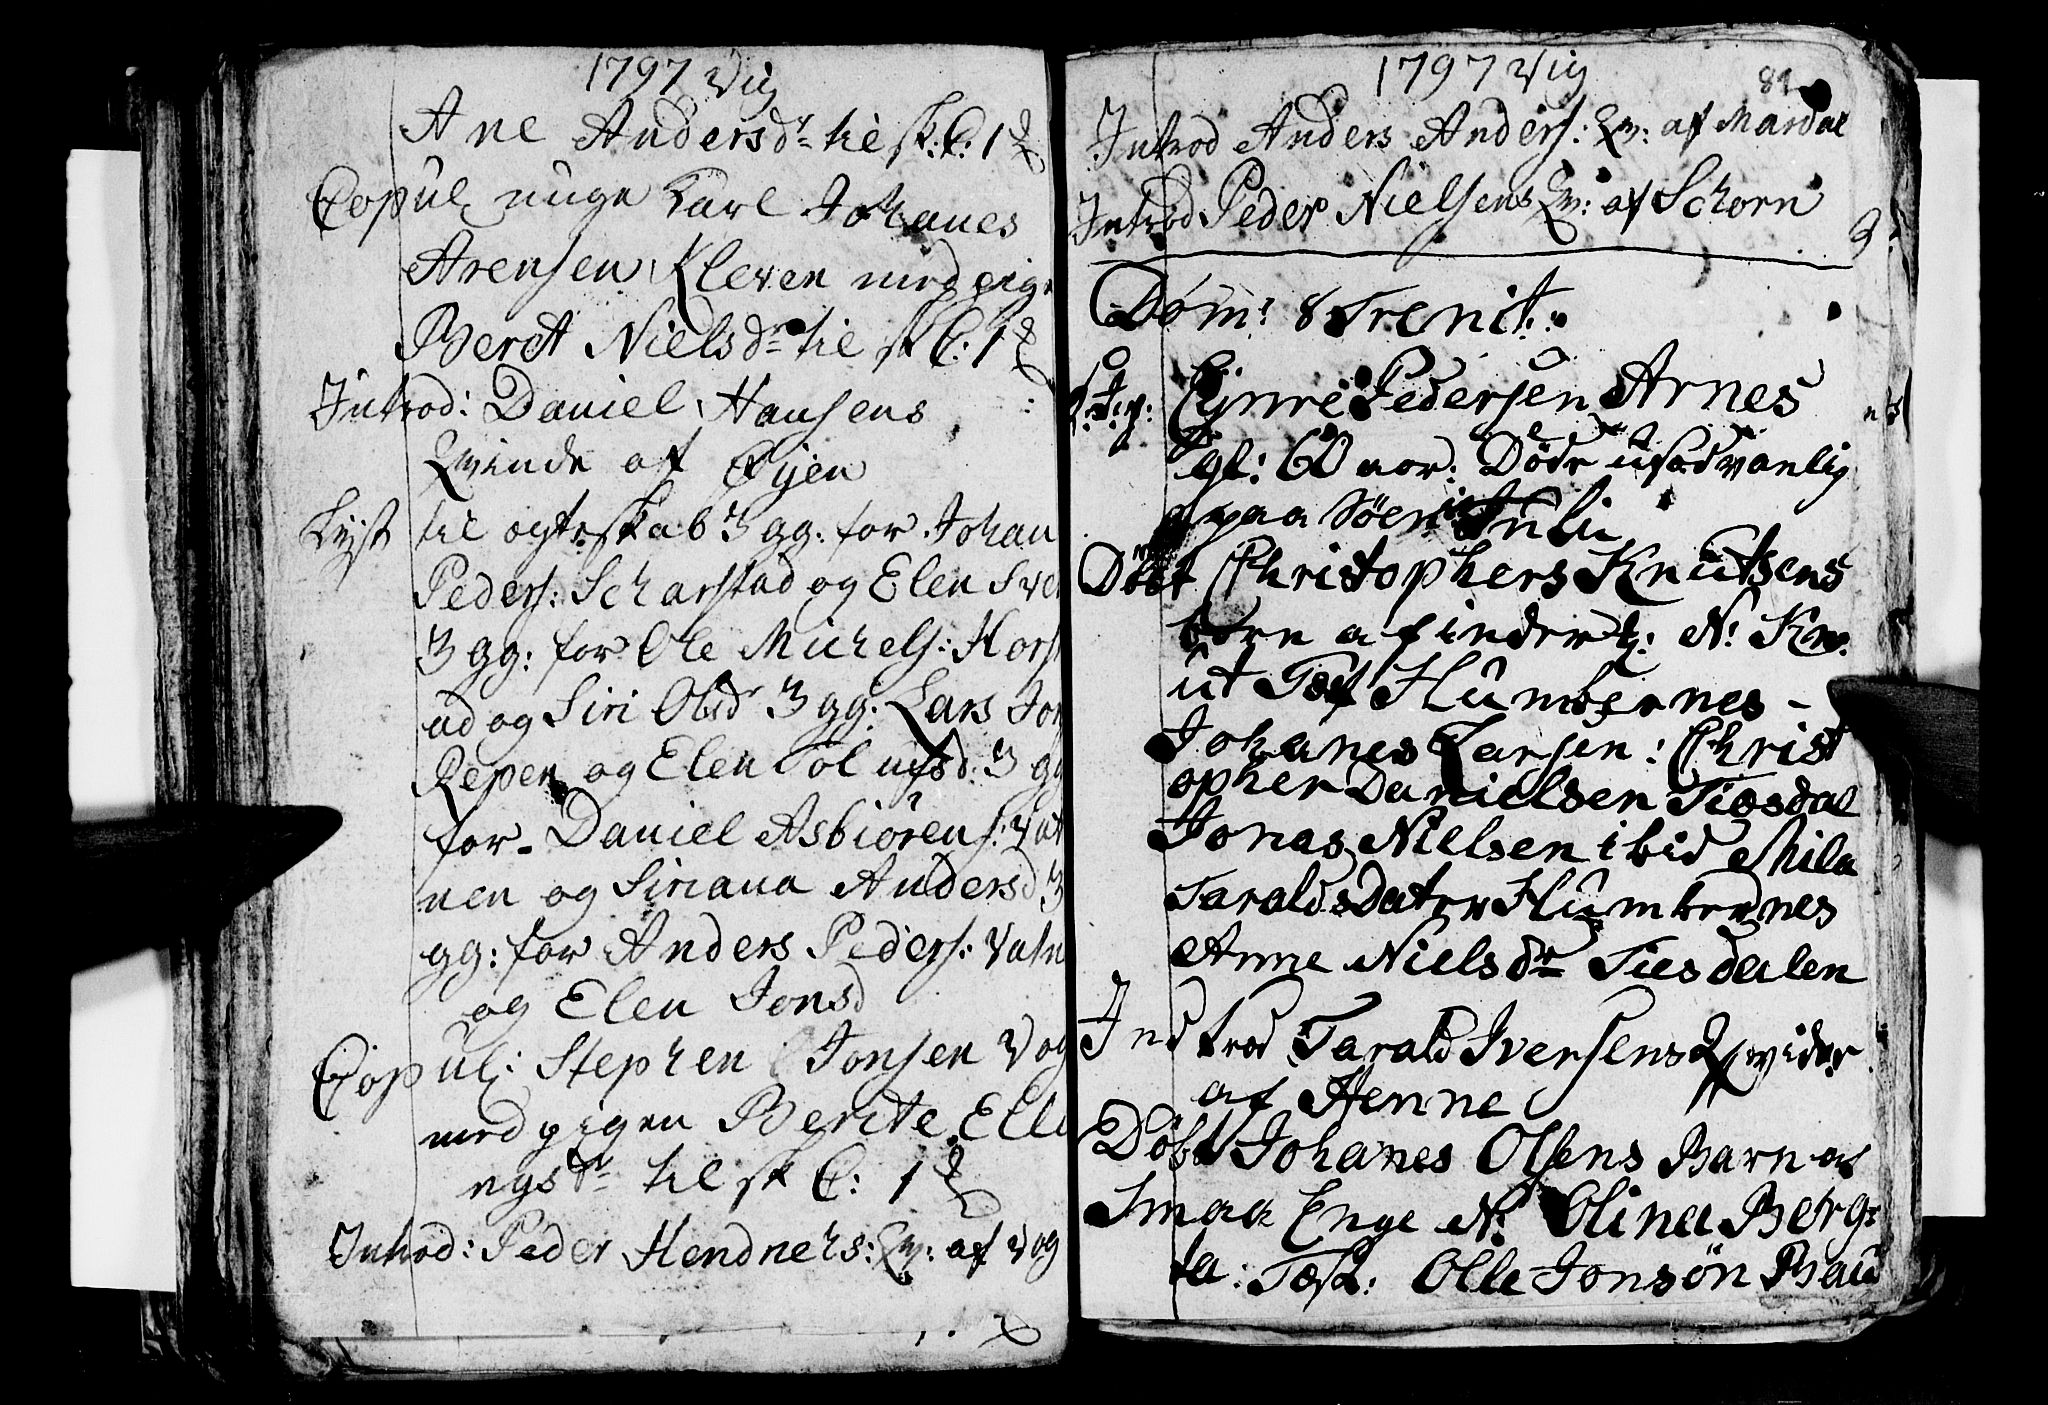 1797 Vig
Ane Andersdr til sk: C: 1
Copul unge Karl Johanes
Arensen Kleven med pig
Beret Nielsdr til sk C: 1
Introd: Daniel Hansens
Qvinde af Øyen
Lyst til egteskab 3 gg: for Johan
Peders: Scharstad og Elen Sve
3 gg: for Ole Michels: Horst
ad og Siri Olsdr 3 gg: Lars Jon
Repen og Elen 3 gg
for Daniel Asbiörens: Vat
nen og Siriana Andersd 3
gg: for Anders Peders: Vatn
og Elen Jonsd
Copul: Stephen Jonsen Vog
med pigen Berete Elli
ngsdr til sk C: 1
Introd: Peder Hendrichs: Qv: af Vog
1797 Vig
Introd Anders Anders: Qv: af Mardal
Introd Peder Nielsens Qv: af Schorn
Dom: 8 Trenit:
Ejnre Pedersen Arnes
gl: 60 aar: Döde usædvanlig
paa Söen Juli
Döbt Christophers Knutsens
born af inder N: Kn
ut Test Humbernes -
Johanes Larsen: Christ
opher Danielsen Tiosdal
Jonas Nielsen ibid Mila
Taralds Dater Humbernes
Anne Nielsdr Tiesdalen
Indtrod Tarald Iversens Qvider
af Henne
Döbt Johanes Olsens Barn af
Smaa Enge N: Olina Berg
ta: Test: Olle Jonsön Bau